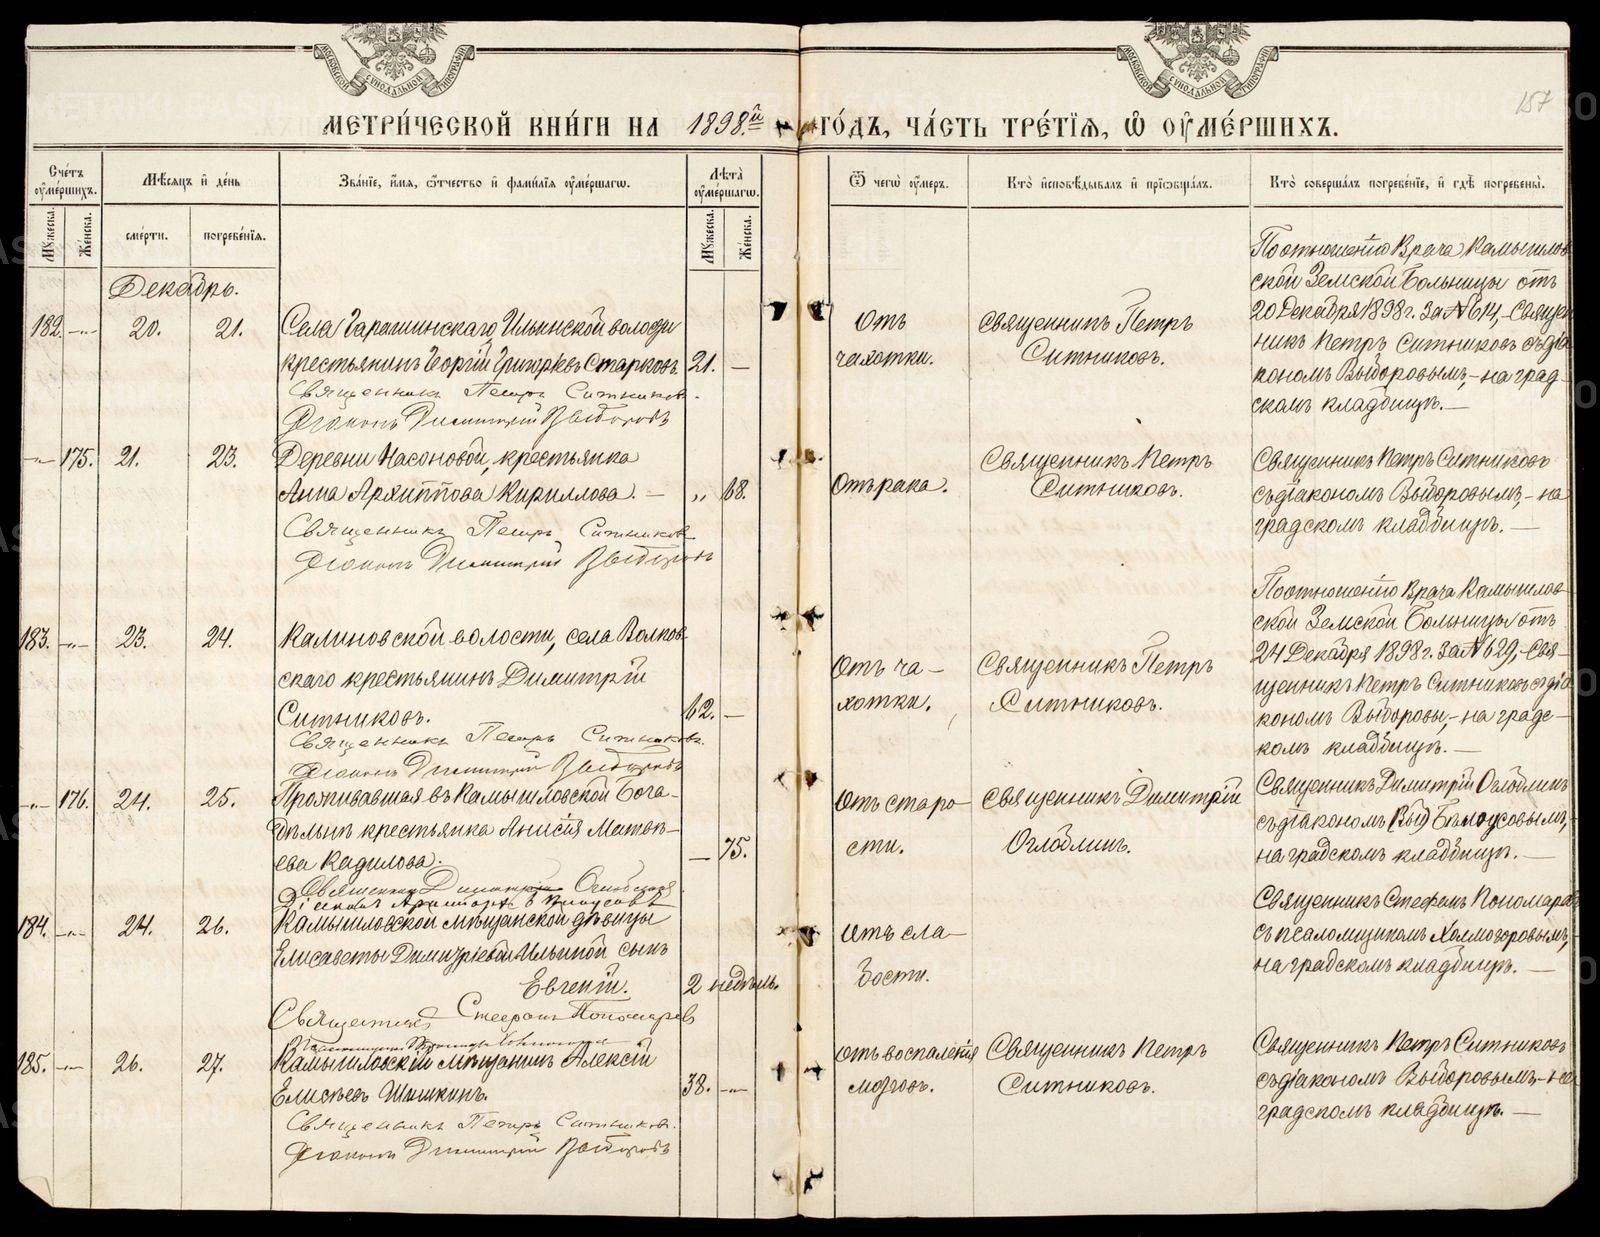 МОСКОВСКОЙ СѴНОДАЛЬНОЙ ТИПОГРАФІИ
МОСКОВСКОЙ СѴНОДАЛЬНОЙ ТИПОГРАФІИ
157
МЕТРИ́ЧЕСКОЙ КНИ́ГИ НА 1898.й ГО́ДЪ, ЧА́СТЬ ТРЕ́ТІѦ, Ѡ ОУМЕ́РШИХЪ.
Сче́тъ оуме́ршихъ.
Мѣ́сяцъ и де́нь
Зва́нїе, и́мя, ѻ́тчество и фами́лїя оуме́ршагѡ.
Лѣ́та оуме́ршагѡ.
Ѿ чегѡ̀ оу́меръ.
Кто̀ исповѣ́дывалъ и прїѡбща́лъ.
Кто̀ соверша́лъ погребе́нїе, и гдѣ̀ погребены̀.
Мꙋ́жеска.
Же́нска.
сме́рти.
погребе́нїя.
Мꙋ́жеска.
Же́нска.
Декабрь.
182. -„- 20. 21.
Села Гарашинскаго, Ильинской волости
крестьянинъ Георгій Григорьевъ Старковъ. 21. —
Священникъ Петръ Ситниковъ.
Діаконъ Димитрій Выборовъ
Отъ
чахотки.
Священникъ Петръ
Ситниковъ.
По отношенію Врача Камышлов
ской Земской Больницы отъ
20 Декабря 1898 г. за № 614,- Священ
никъ Петръ Ситниковъ съ діа
кономъ Выборовымъ,- на град-
скомъ кладбищѣ.—
-„- 175. 21. 23.
Деревни Насоновой, крестьянка
Анна Архиппова Кириллова. — „ 68.
Священникъ Петръ Ситниковъ
Діаконъ Димитрій Выборовъ
Отъ рака.
Священникъ Петръ
Ситниковъ.
Священникъ Петръ Ситниковъ
съ діакономъ Выборовымъ,- на
градскомъ кладбищѣ.—
183. -„- 23. 24.
Калиновской волости, села Волков
скаго крестьянинъ Димитрій
Ситниковъ. 62. —
Священникъ Петръ Ситниковъ.
Діаконъ Димитрій Выборовъ
Отъ ча-
хотки.
Священникъ Петръ
Ситниковъ.
По отношенію Врача Камышлов-
ской Земской Больницы отъ
24 Декабря 1898 г. за № 629,- Свя-
щенникъ Петръ Ситниковъ съ діа
кономъ Выборовы,- на градс-
комъ кладбищѣ.—
-„- 176. 24. 25.
Проживавшая въ Камышловской Бога-
дѣльнѣ крестьянка Анисія Матвѣ-
ева Кадилова. — 75.
Священникъ Димитрій Оглоблинъ
Отъ старо-
сти.
Священникъ Димитрій
Оглоблинъ.
Священникъ Димитрій Оглоблинъ
съ діакономъ (Выб) Бѣлоусовымъ,-
на градскомъ кладбищѣ.—
184. -„- 24. 26.
Камышловской мѣщанской дѣвицы
Елисаветы Димитріевой Ильиной сынъ
Евгеній. 2 недѣль.
Священникъ Стефанъ Пономаревъ
Отъ сла-
бости.
Священникъ Стефанъ Пономарев
съ псаломщикомъ Холмогоровымъ,-
на градскомъ кладбищѣ.—
185. -„- 26. 27.
Камышловскій мѣщанинъ Алексій
Елисѣевъ Шишкинъ. 38. -„-
Священникъ Петръ Ситниковъ.
Діаконъ Димитрій Выборовъ
Отъ воспаленія
мозговъ.
Священникъ Петръ
Ситниковъ.
Священникъ Петръ Ситниковъ
съ діакономъ Выборовымъ,- на
градскомъ кладбищѣ.—